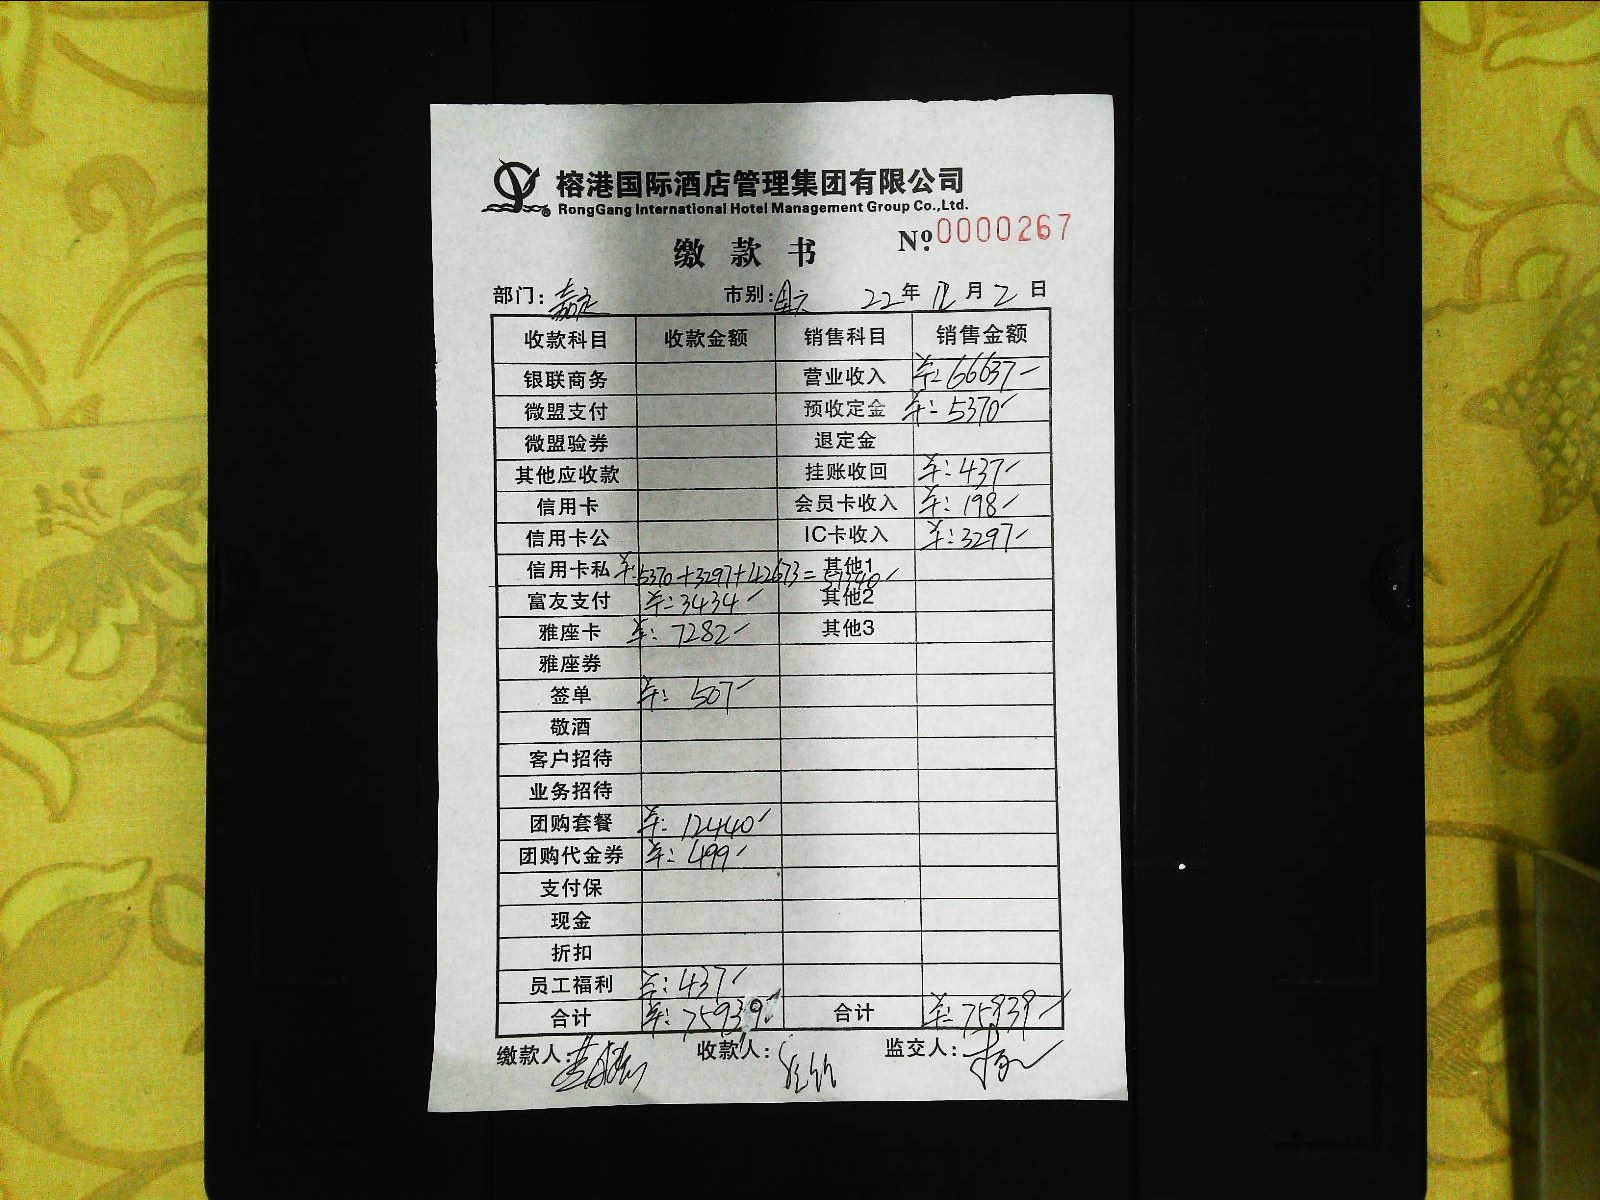 榕港国际酒店管理集团有限公司
RongGang International Hotel Management Group Co.,Ltd.
缴款书 Nº:0000267
部门:嘉定 市别: 22年12月2日
收款科目 收款金额 销售科目 销售金额
银联商务 营业收入 羊:66637
微盟支付 预收定金 羊:5370
微盟验券 退定金
其他应收款 挂账收回 羊:437
信用卡 会员卡收入 羊:198
信用卡公 IC卡收入 羊:3297
信用卡私 羊:5370+3297+42673=51340 其他1
富友支付 羊:3434 其他2
雅座卡 羊:7282 其他3
雅座券
签单 羊:507
敬酒
客户招待
业务招待
团购套餐 羊:12440
团购代金券 羊:499
支付保
现金
折扣
员工福利 羊:437
合计 羊:75939 合计 羊:75939
缴款人: 收款人: 监交人: